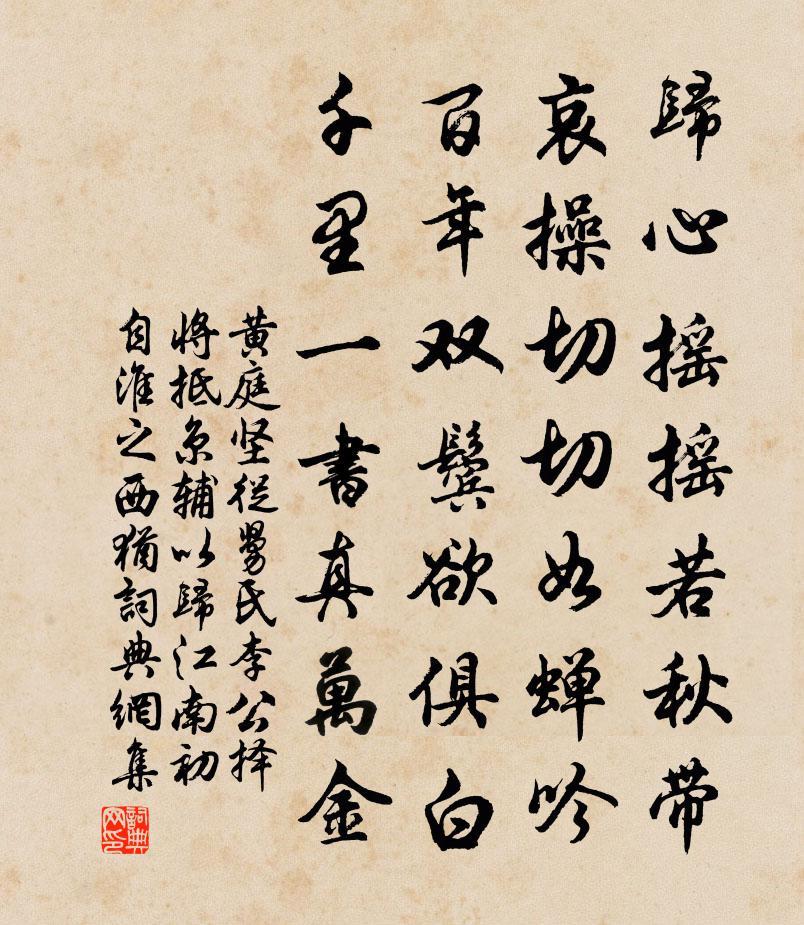 歸心摇摇若秋带
哀操切切如蝉吟
百年双鬓欲俱白
千里一書真萬金
黄庭坚從舅氏李公择
將抵京辅以歸江南初
自淮之西猶詞典網集
詞典
网印